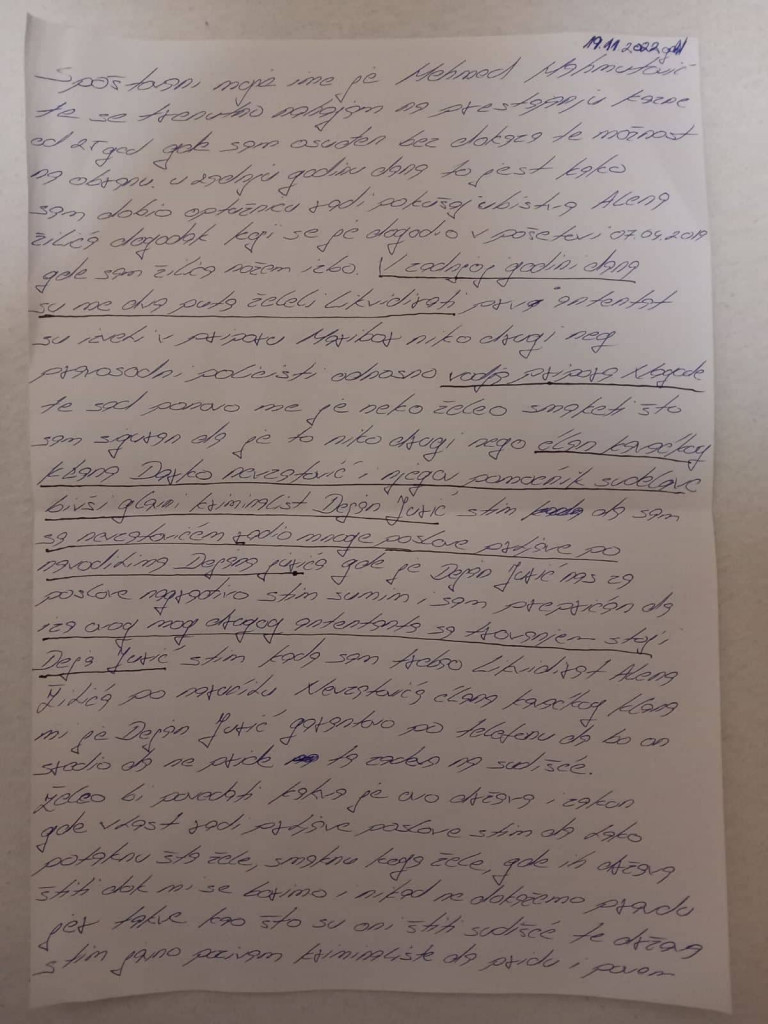 19.11.2022 god
Spoštovani moje ime je Mehmed Mahmutović
te se trenutno nahajam na prestajanju kazne
od 25 god gde sam osuđen bez dokaza te možnost
na obranu. u zadnju godinu dana to jest kako
sam dobio optužnicu radi pokušaj ubistva Alena
Žilića dogodak koji se je dogodio v 07.04.2019
gde sam žilića nožem izbo. V zadnjoj godini dana
su me dva puta želeli Likvidirati prvi antentat
su izveli v priporu Maribor niko drugi neg
pravosodni policisti odnosno vodja pripora Nagode
te sad ponovo me je neko želeo smaketi što
sam siguran da je to niko drugi nego član kavačkog
klana Darko nevzatović i njegov pomočnik sudelavc
bivši glavni kriminalist Dejan Jurić stim da sam
sa nevzatovićem radio mnoge poslove prljave po
navodilima Dejana jurića gde je Dejan Jurić nas za
poslove nagradivo stim sumim i sam prepričan da
iza ovog mog drugog antentanta sa trovanjem stoji
Deja Jurić stim kada sam trebao Likvidirat Alena
Žilića po naročilu Nevzatovića člana kavačkog klana
mi je Dejan Jurić garantovo po telefonu da bo on
sredio da ne pride ta zadeva na sudišće.
Želeo bi povedati kakva je ovo država i zakon
gde vlast radi prljave poslove stim da lako
potaknu šta žele, smaknu koga žele, gde ih država
štiti dok mi se borimo i nikad ne dokažemo pravdu
jer takve kao što su oni štiti sudišče te država
stim javno pozivam kriminaliste da pridu i povem